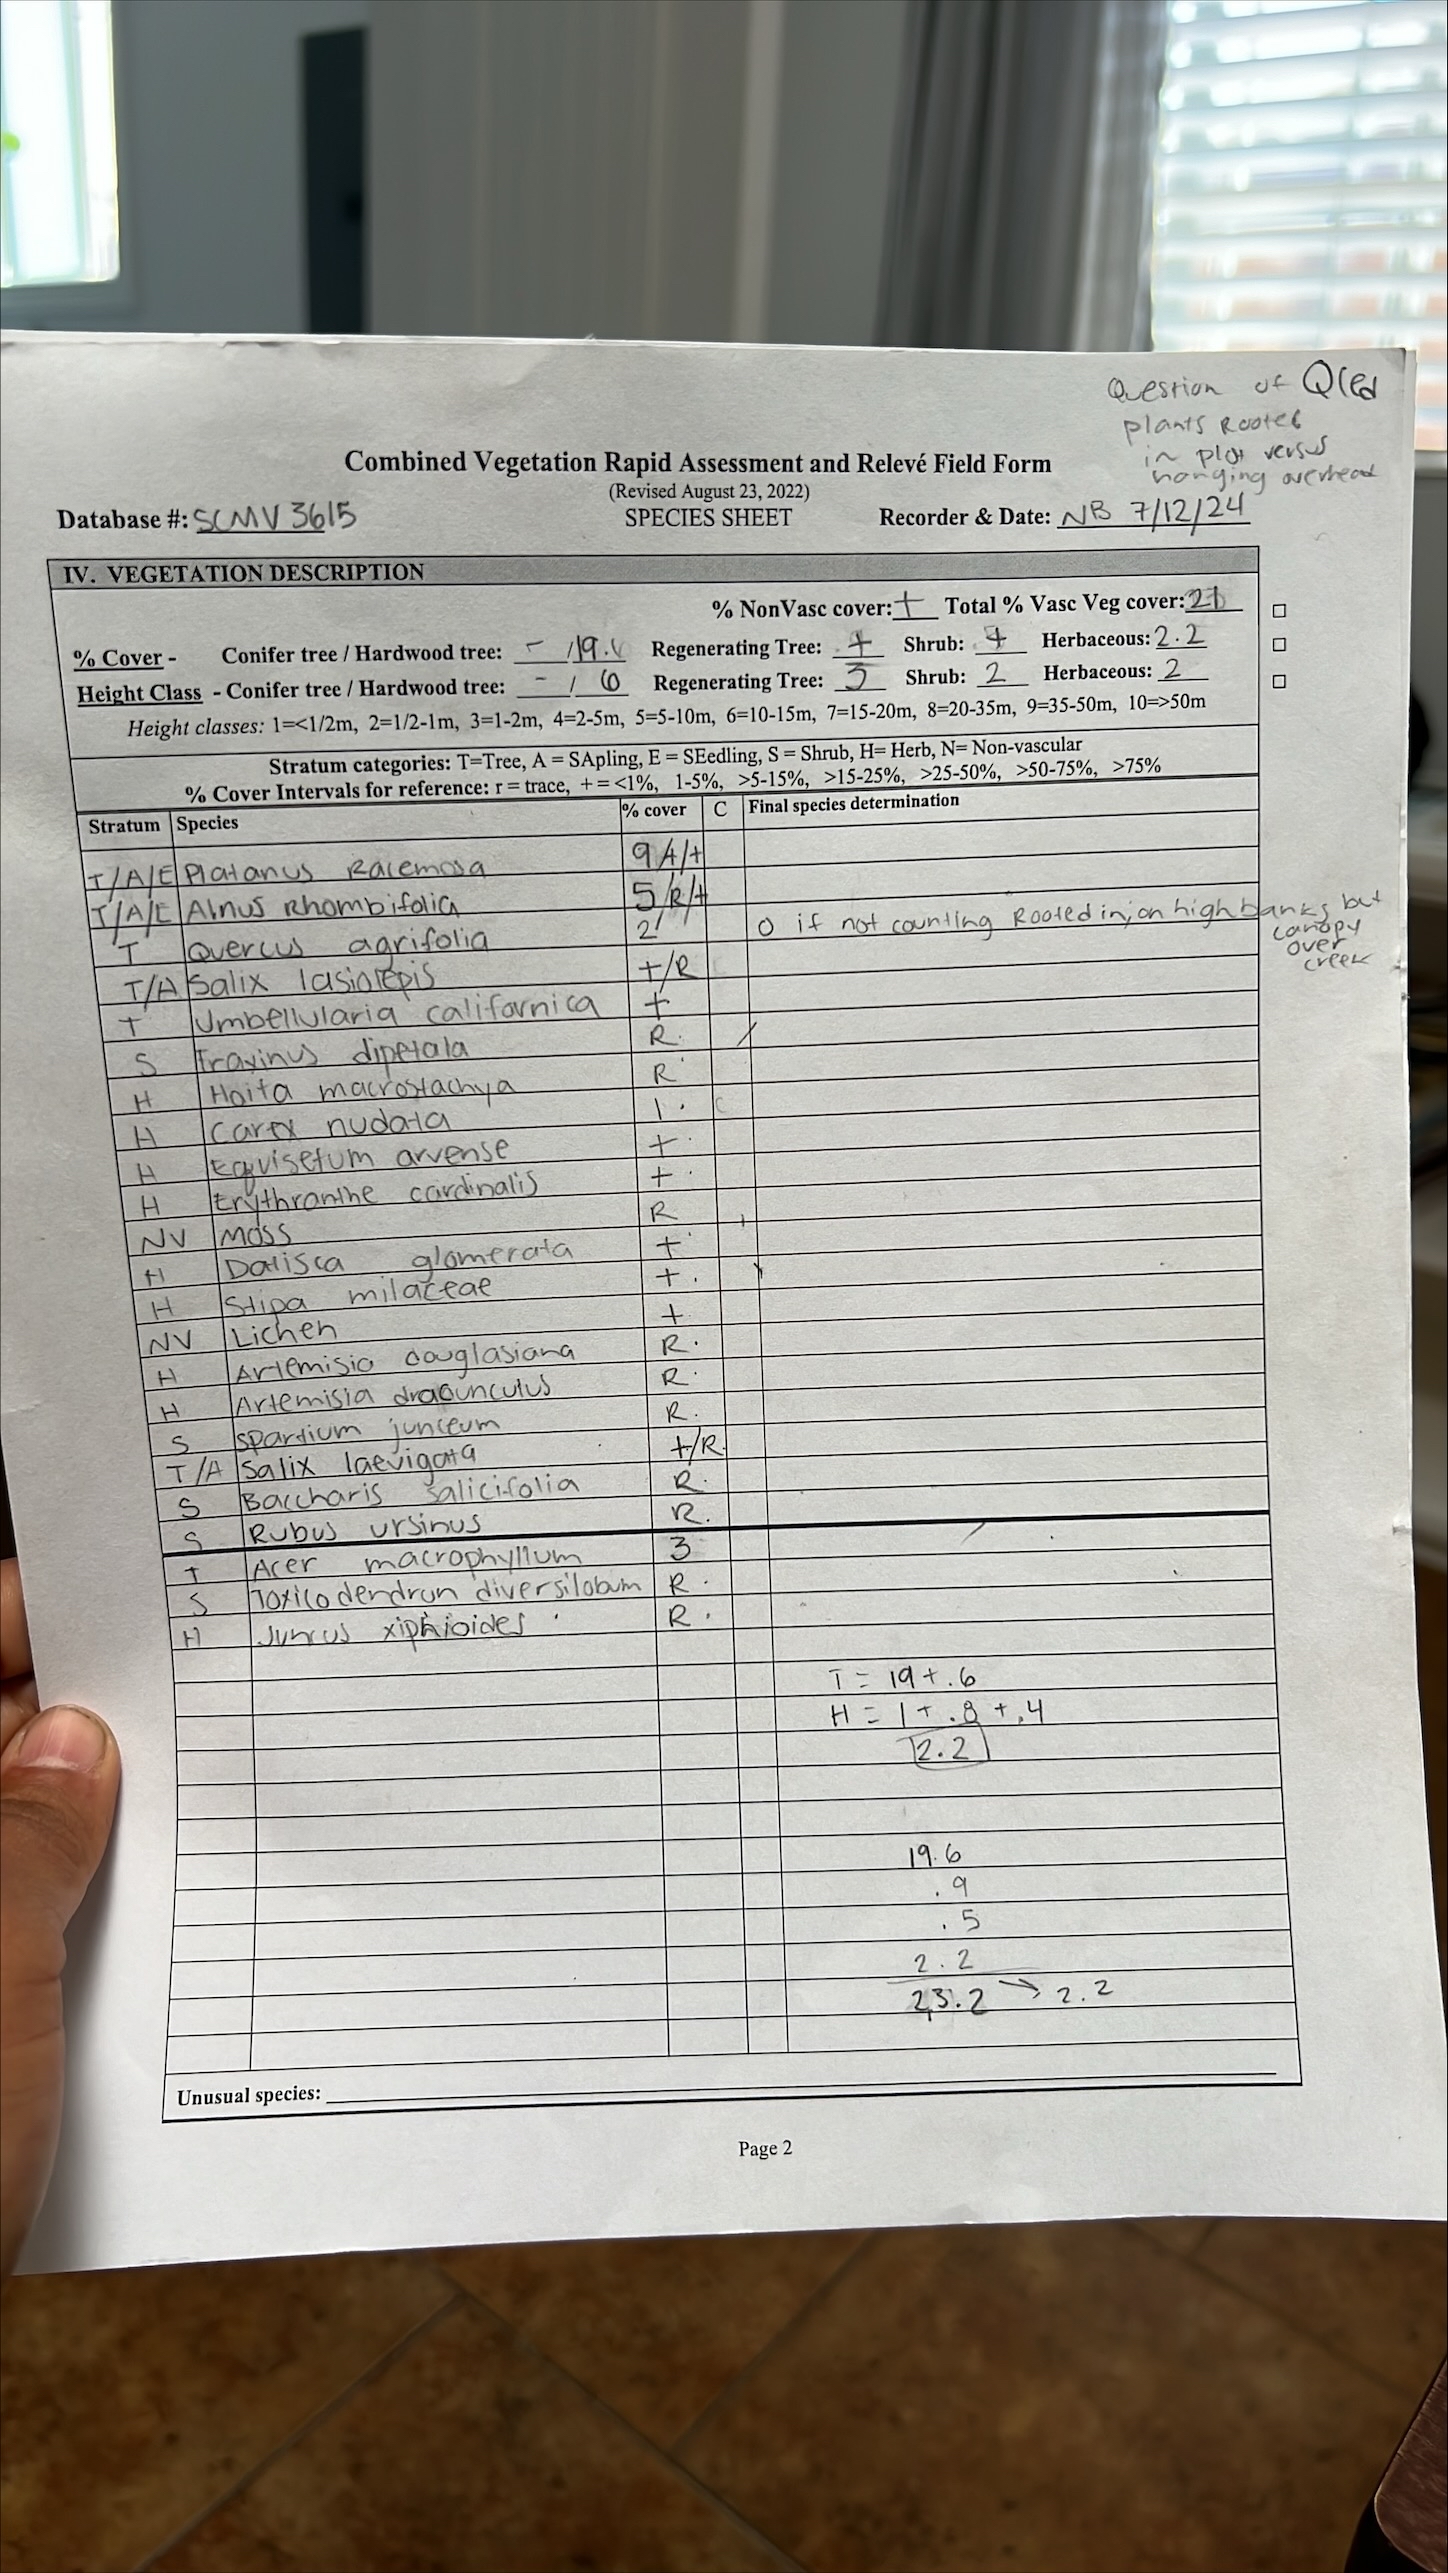 Question of Qled
plants Rooted
in plot versus
hanging overhead
Combined Vegetation Rapid Assessment and Relevé Field Form
(Revised August 23, 2022)
Database #: SCMV3615 SPECIES SHEET Recorder & Date: NB 7/12/24
IV. VEGETATION DESCRIPTION
% NonVasc cover: + Total % Vasc Veg cover: 21
% Cover - Conifer tree / Hardwood tree: - / 19.6 Regenerating Tree: + Shrub: + Herbaceous: 2.2
Height Class - Conifer tree / Hardwood tree: - / 6 Regenerating Tree: 3 Shrub: 2 Herbaceous: 2
Height classes: 1=<1/2m, 2=1/2-1m, 3=1-2m, 4=2-5m, 5=5-10m, 6=10-15m, 7=15-20m, 8=20-35m, 9=35-50m, 10=>50m
Stratum categories: T=Tree, A = SApling, E = SEedling, S = Shrub, H= Herb, N= Non-vascular
% Cover Intervals for reference: r = trace, + = <1%, 1-5%, >5-15%, >15-25%, >25-50%, >50-75%, >75%
Stratum Species % cover C Final species determination
T/A/E Platanus Racemosa 9/+/+
T/A/E Alnus Rhombifolia 5/R/+
T Quercus agrifolia 2 0 if not counting Rooted in; on high banks but
canopy
over
creek
T/A Salix lasiolepis +/R
T Umbellularia californica +
S Fraxinus dipetala R
H Hoita macrostachya R
H Carex nudata 1 C
H Equisetum arvense +
H Erythranthe cardinalis +
NV Moss R
H Datisca glomerata +
H Stipa milaceae +
NV Lichen +
H Artemisia douglasiana R
H Artemisia dracunculus R
S Spartium junceum R
T/A Salix laevigata +/R
S Baccharis salicifolia R
S Rubus ursinus R
T Acer macrophyllum 3
S Toxicodendron diversilobum R
H Juncus xiphioides R
T = 19 + .6
H = 1 + .8 + .4
2.2
19.6
.9
.5
2.2
23.2 → 2.2
Unusual species:
Page 2